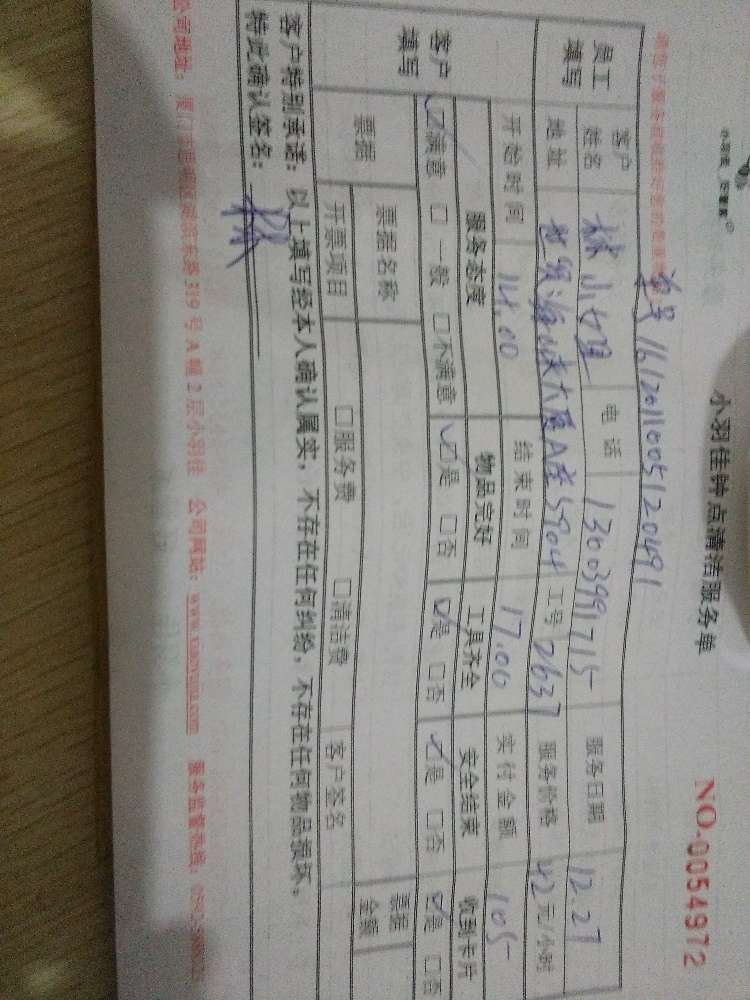 小羽佳 好管家
小羽佳钟点清洁服务单
NO.0054972
单号 161201100512049 1
员工填写 客户姓名 林小姐 电话 13003991715 服务日期 12.27
地址 世贸海峡大厦A座5904 工号 2637 服务价格 42 元/小时
开始时间 14.00 结束时间 17.00 实付金额 105
客户填写 服务态度 物品完好 工具齐全 安全结束 收到卡片
☑满意 □一般 □不满意 ☑是 □否 ☑是 □否 ☑是 □否 ☑是 □否
票据 票据名称 票据金额
开票项目 □服务费 □清洁费 客户签名
客户特别承诺：以上填写经本人确认属实，不存在任何纠纷，不存在任何物品损坏。
特此确认签名：
公司地址： 319号A幢2层小羽佳 公司网站：www.xiaoyujia.com 服务监督热线：